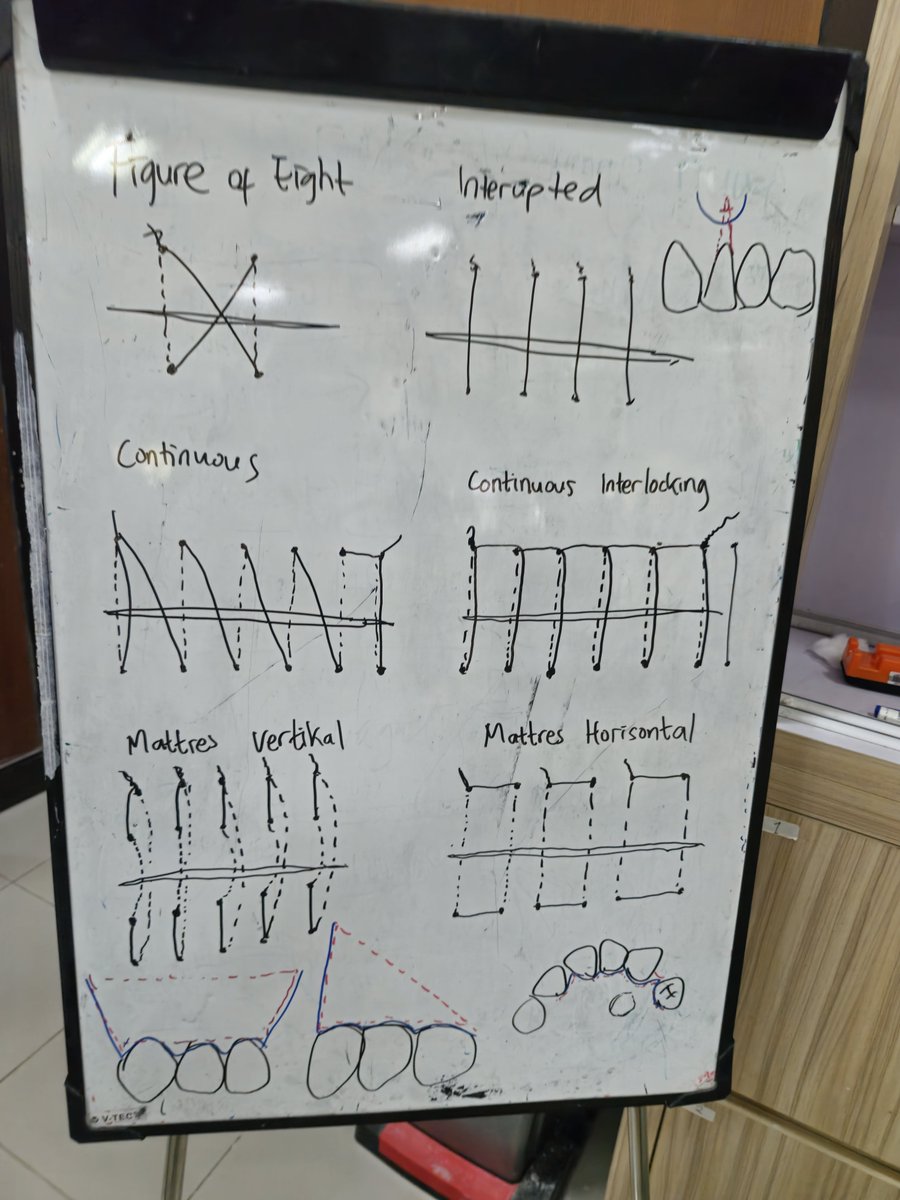 Figure of Eight
Interupted
Continuous
Continuous Interlocking
Mattres Vertikal
Mattres Horisontal
V-TEC
1